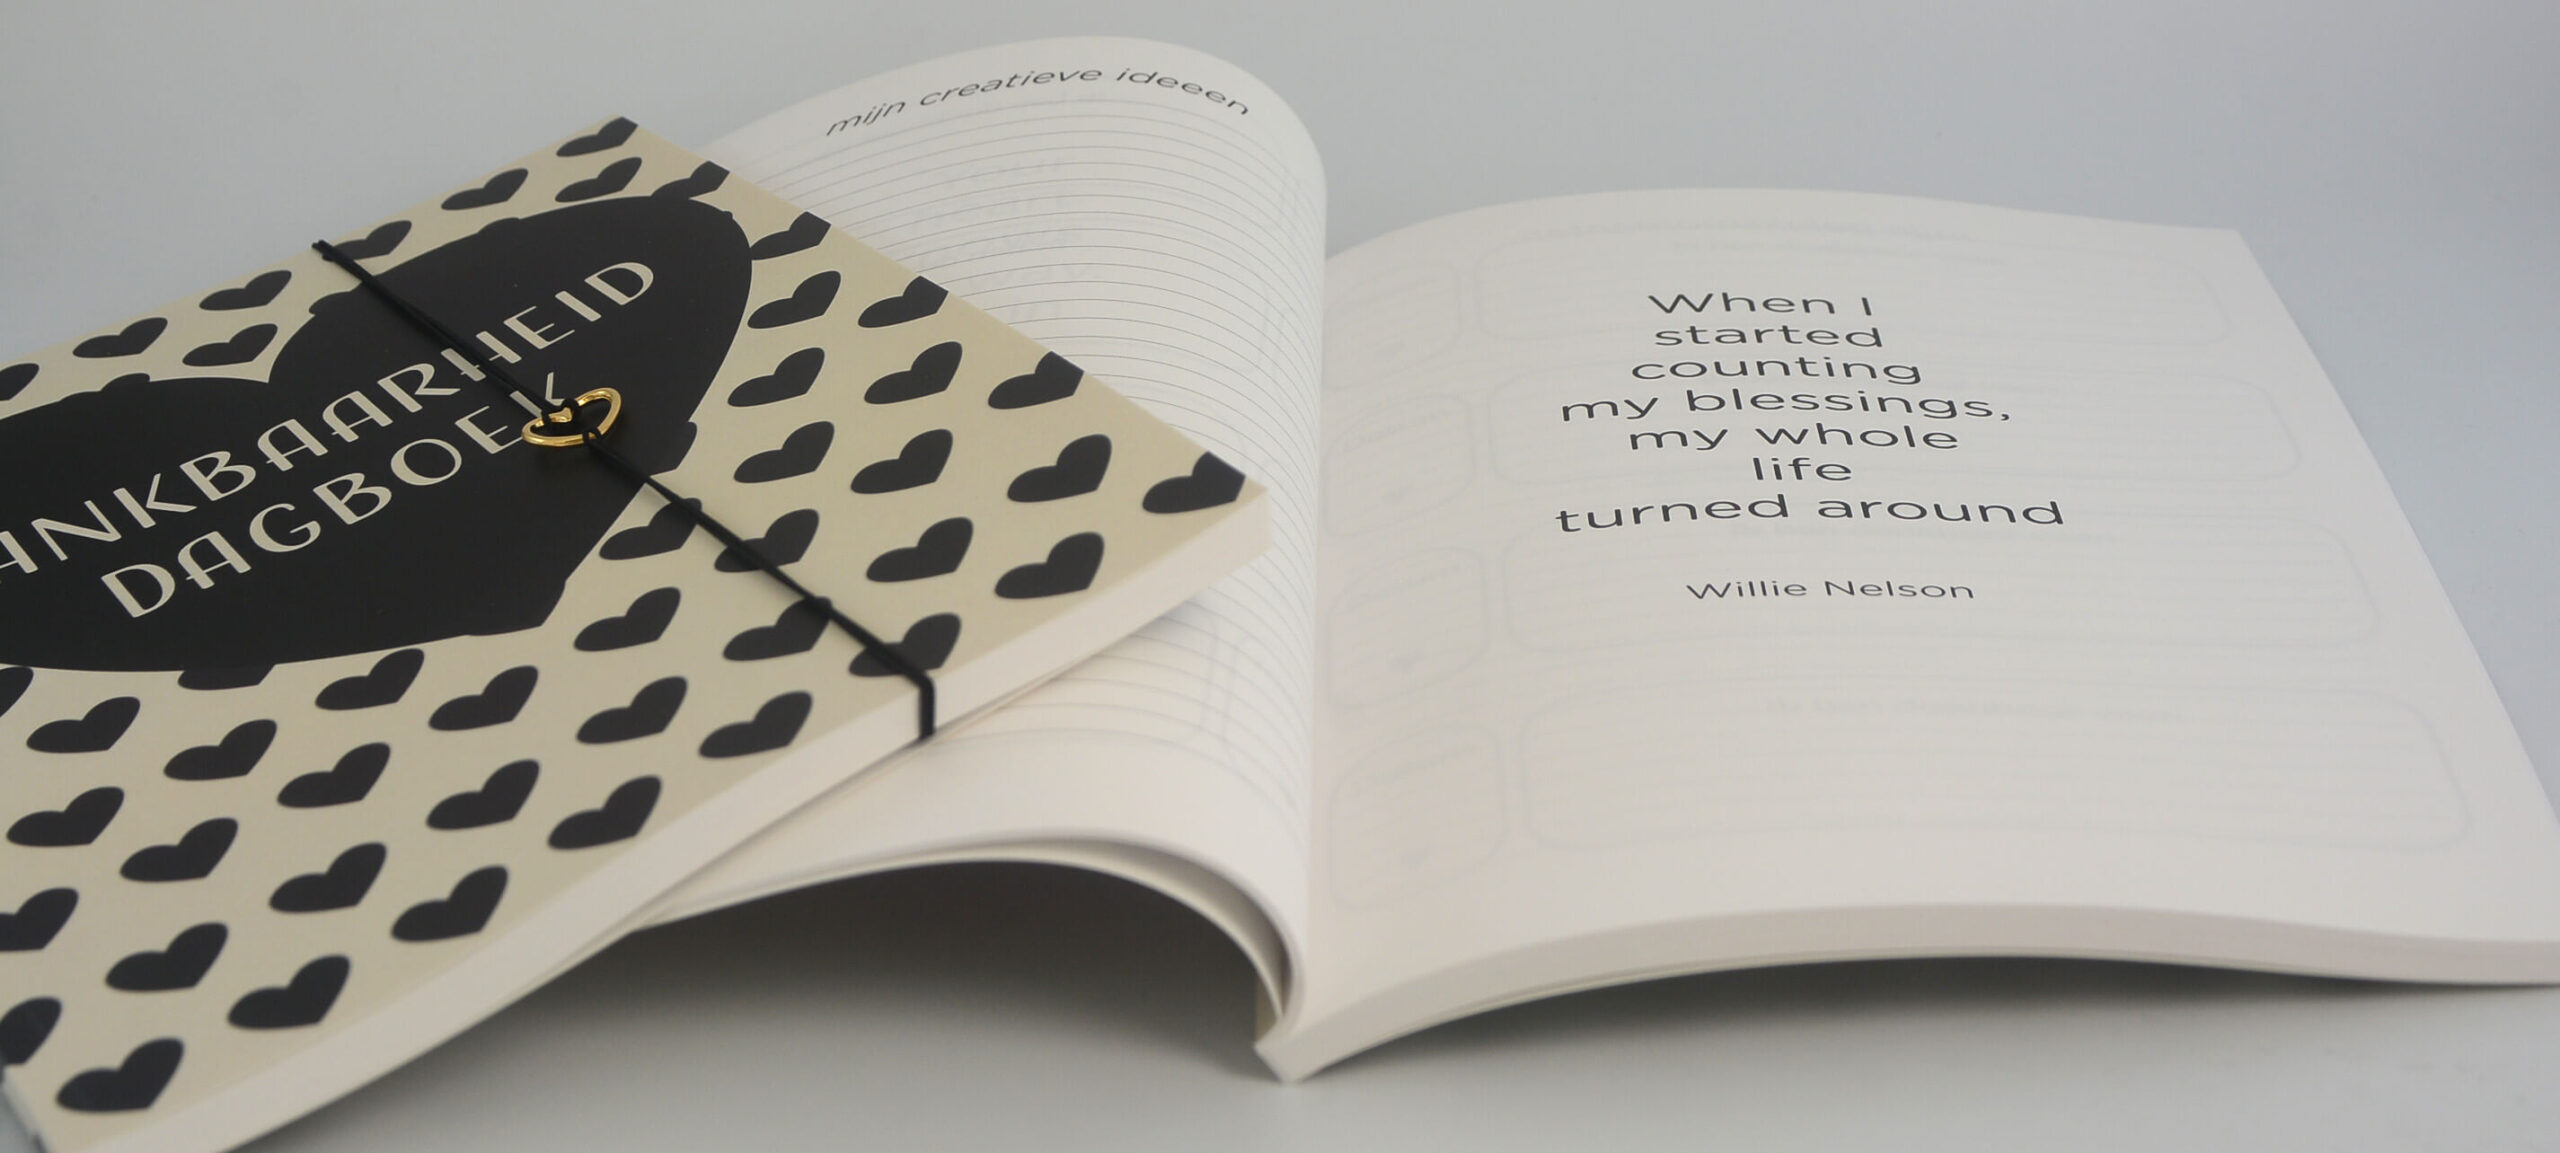 ANKBAARHEID
DAGBOEK
mijn creatieve ideeen
When I
started
counting
my blessings,
my whole
life
turned around
Willie Nelson